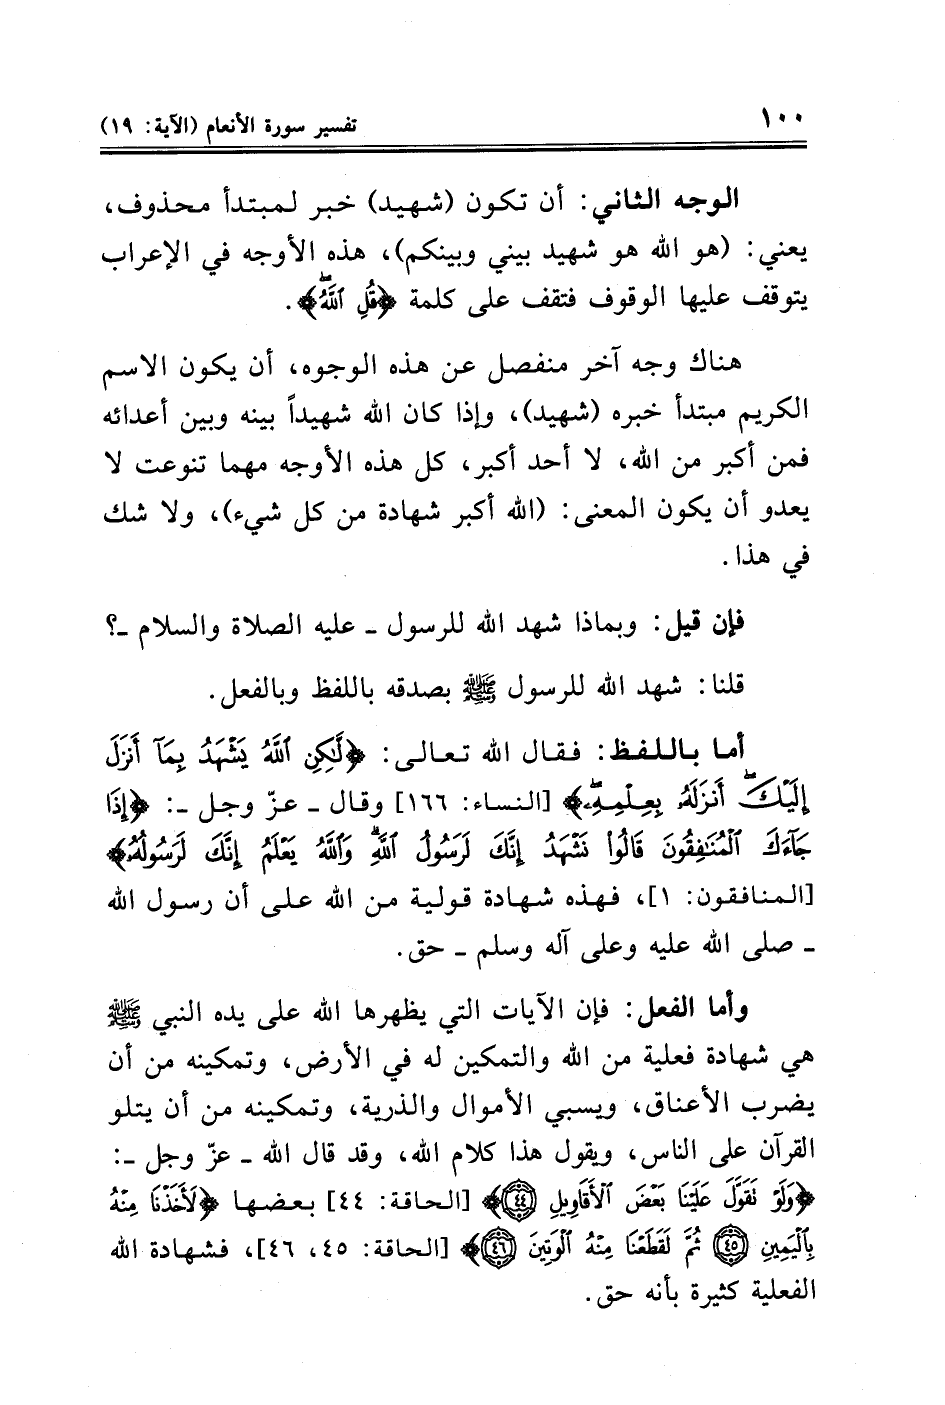 ١٠٠
تفسير سورة الأنعام (الآية: ١٩)
الوجه الثاني: أن تكون (شهيد) خبر لمبتدأ محذوف،
يعني: (هو الله هو شهيد بيني وبينكم)، هذه الأوجه في الإعراب
يتوقف عليها الوقوف فتقف على كلمة ﴿قُلِ ٱللَّهُۖ﴾.
هناك وجه آخر منفصل عن هذه الوجوه، أن يكون الاسم
الكريم مبتدأ خبره (شهيد)، وإذا كان الله شهيداً بينه وبين أعدائه
فمن أكبر من الله، لا أحد أكبر، كل هذه الأوجه مهما تنوعت لا
يعدو أن يكون المعنى: (الله أكبر شهادة من كل شيء)، ولا شك
في هذا.
فإن قيل: وبماذا شهد الله للرسول ـ عليه الصلاة والسلام ـ؟
قلنا: شهد الله للرسول ﷺ بصدقه باللفظ وبالفعل.
أما باللفظ: فقال الله تعالى: ﴿لَّٰكِنِ ٱللَّهُ يَشْهَدُ بِمَآ أَنزَلَ
إِلَيْكَۖ أَنزَلَهُۥ بِعِلْمِهِۦۖ﴾ [النساء: ١٦٦] وقال ـ عزّ وجل ـ: ﴿إِذَا
جَآءَكَ ٱلْمُنَٰفِقُونَ قَالُوا۟ نَشْهَدُ إِنَّكَ لَرَسُولُ ٱللَّهِۗ وَٱللَّهُ يَعْلَمُ إِنَّكَ لَرَسُولُهُۥ﴾
[المنافقون: ١]، فهذه شهادة قولية من الله على أن رسول الله
ـ صلى الله عليه وعلى آله وسلم ـ حق.
وأما الفعل: فإن الآيات التي يظهرها الله على يده النبي ﷺ
هي شهادة فعلية من الله والتمكين له في الأرض، وتمكينه من أن
يضرب الأعناق، ويسبي الأموال والذرية، وتمكينه من أن يتلو
القرآن على الناس، ويقول هذا كلام الله، وقد قال الله ـ عزّ وجل ـ:
﴿وَلَوْ تَقَوَّلَ عَلَيْنَا بَعْضَ ٱلْأَقَاوِيلِ ٤٤﴾ [الحاقة: ٤٤] بعضها ﴿لَأَخَذْنَا مِنْهُ
بِٱلْيَمِينِ ٤٥ ثُمَّ لَقَطَعْنَا مِنْهُ ٱلْوَتِينَ ٤٦﴾ [الحاقة: ٤٥، ٤٦]، فشهادة الله
الفعلية كثيرة بأنه حق.